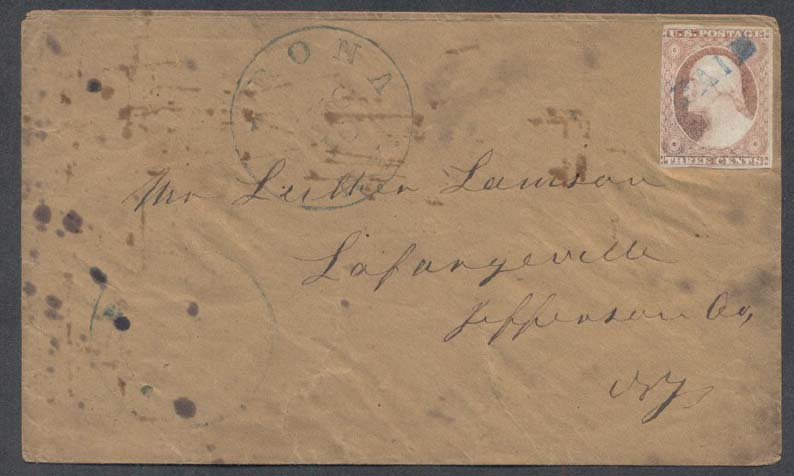 RONA
U.S. POSTAGE
THREE CENTS
Mr Luther Lamson
Lafargeville
Jefferson Co,
NY